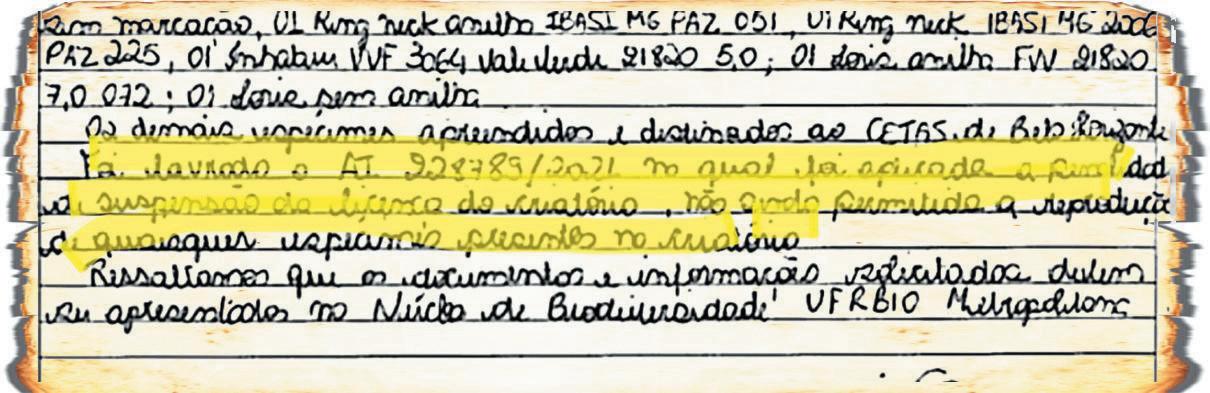 sem marcação, 01 Ring neck anilha IBASI MG PAZ 051, 01 Ring neck IBASI MG 2006
PAZ 225, 01 Inhabau VVF 3064 Vale Verde 21820 5,0 ; 01 Loris anilha FVV 21820
7,0 072 ; 01 Loris sem anilha
Os demais espécimes apreendidos e destinados ao CETAS de Belo Horizonte
Foi lavrado o AI 228789/2021 no qual foi aplicada a penalidad
de suspensão da licença do criatório, não sendo permitida a reproduçã
de quaisquer espécimes presentes no criatório
Ressaltamos que os documentos e informação solicitados devem
ser apresentados no Núcleo de Biodiversidade UFRBIO Metropolitana